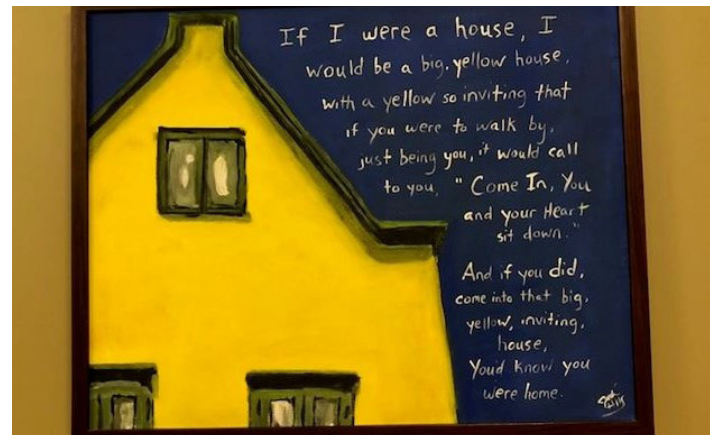 If I were a house, I
would be a big, yellow house,
with a yellow so inviting that
if you were to walk by,
just being you, it would call
to you, "Come In, You
and your Heart
sit down."
And if you did,
come into that big,
yellow, inviting,
house,
You'd know you
were home.